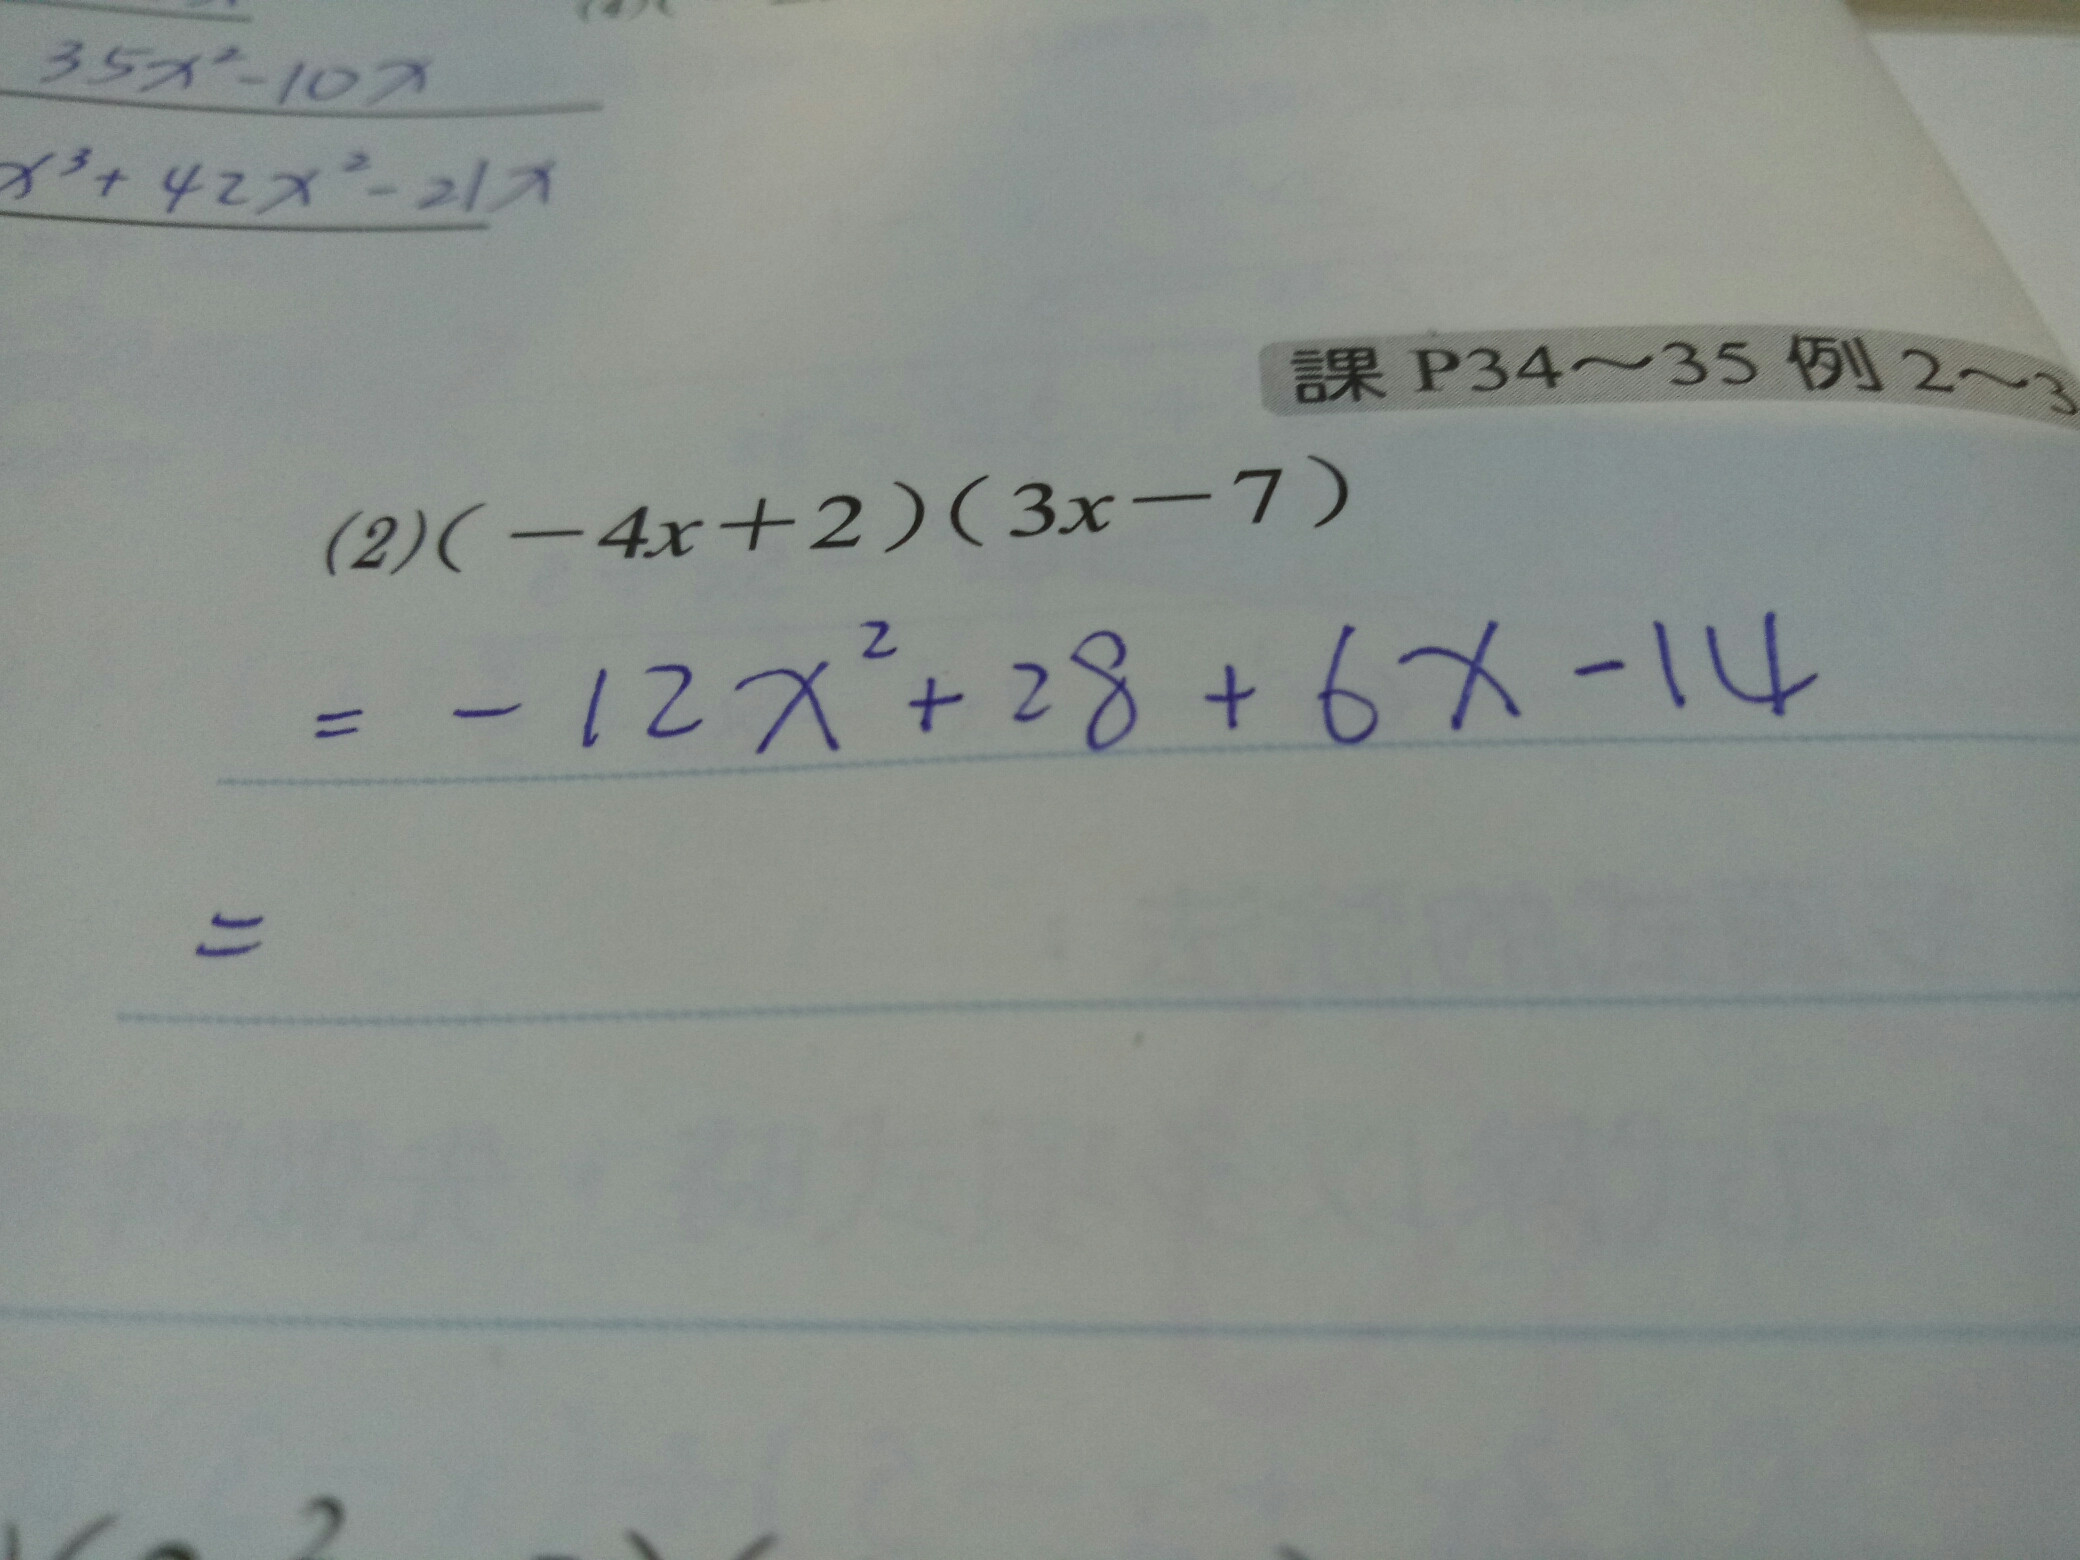 35x²-10x
x³+42x²-21x
課 P34～35 例 2～3
(2)(－4x＋2)(3x－7)
= -12x²+28+6x-14
=